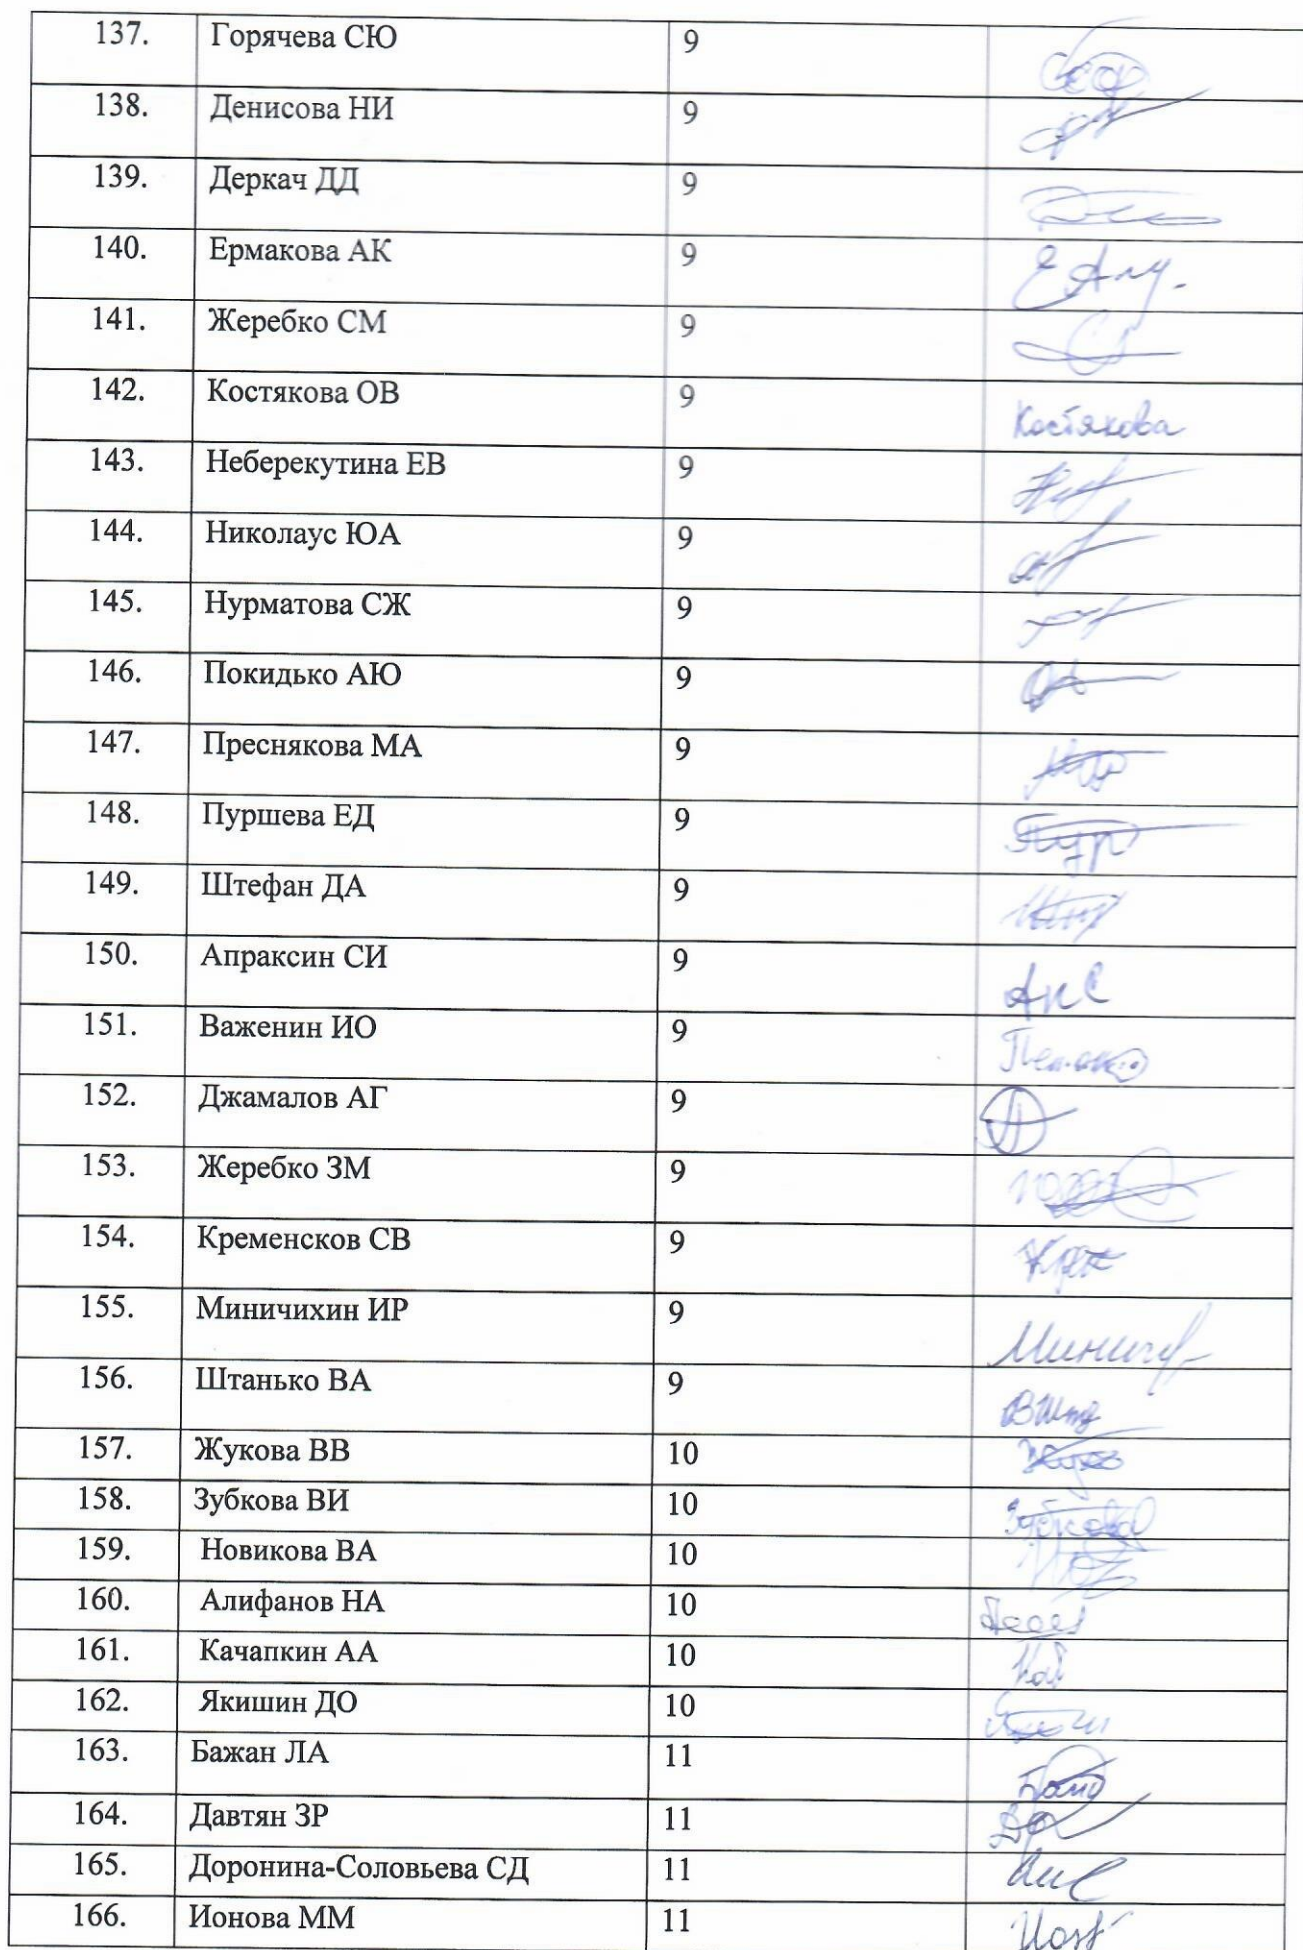 137. Горячева СЮ 9
138. Денисова НИ 9
139. Деркач ДД 9
140. Ермакова АК 9
141. Жеребко СМ 9
142. Костякова ОВ 9 Костякова
143. Неберекутина ЕВ 9
144. Николаус ЮА 9
145. Нурматова СЖ 9
146. Покидько АЮ 9
147. Преснякова МА 9
148. Пуршева ЕД 9
149. Штефан ДА 9
150. Апраксин СИ 9
151. Важенин ИО 9
152. Джамалов АГ 9
153. Жеребко ЗМ 9
154. Кременсков СВ 9
155. Миничихин ИР 9
156. Штанько ВА 9
157. Жукова ВВ 10
158. Зубкова ВИ 10 Зубкова
159. Новикова ВА 10
160. Алифанов НА 10
161. Качапкин АА 10
162. Якишин ДО 10
163. Бажан ЛА 11
164. Давтян ЗР 11
165. Доронина-Соловьева СД 11
166. Ионова ММ 11